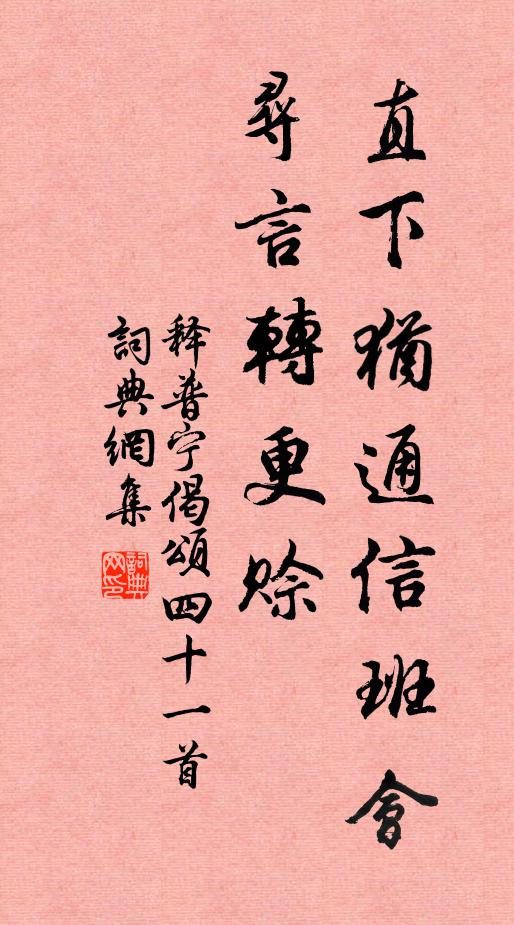 直下猶通信班會
尋言轉更賒
释普宁偈頌四十一首
詞典網集
詞典網印